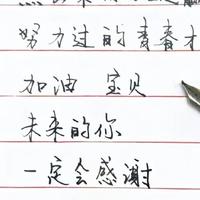 努力过的青春才
加油 宝贝
未来的你
一定会感谢